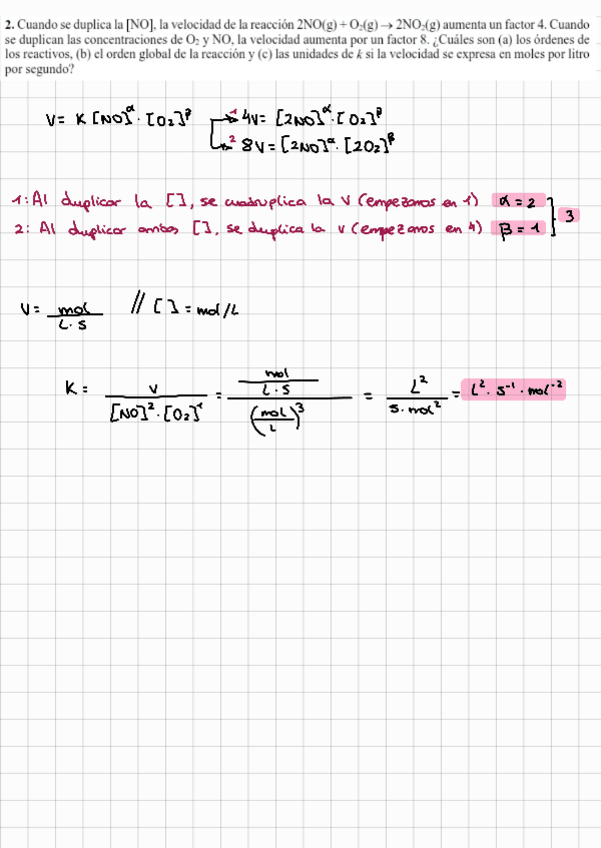 2. Cuando se duplica la [NO], la velocidad de la reacción 2NO(g) + O₂(g) → 2NO₂(g) aumenta un factor 4. Cuando
se duplican las concentraciones de O₂ y NO, la velocidad aumenta por un factor 8. ¿Cuáles son (a) los órdenes de
los reactivos, (b) el orden global de la reacción y (c) las unidades de k si la velocidad se expresa en moles por litro
por segundo?
V = K [NO]^α · [O₂]^β
1 4V = [2NO]^α · [O₂]^β
2 8V = [2NO]^α · [2O₂]^β
1: Al duplicar la [], se cuadruplica la v (empezamos en 1) α = 2
2: Al duplicar ambas [], se duplica la v (empezamos en 4) β = 1
3
V = mol / L · s // [] = mol/L
K = v / [NO]² · [O₂]¹ = (mol / L · s) / (mol / L)³ = L² / s · mol² = L² · s⁻¹ · mol⁻²